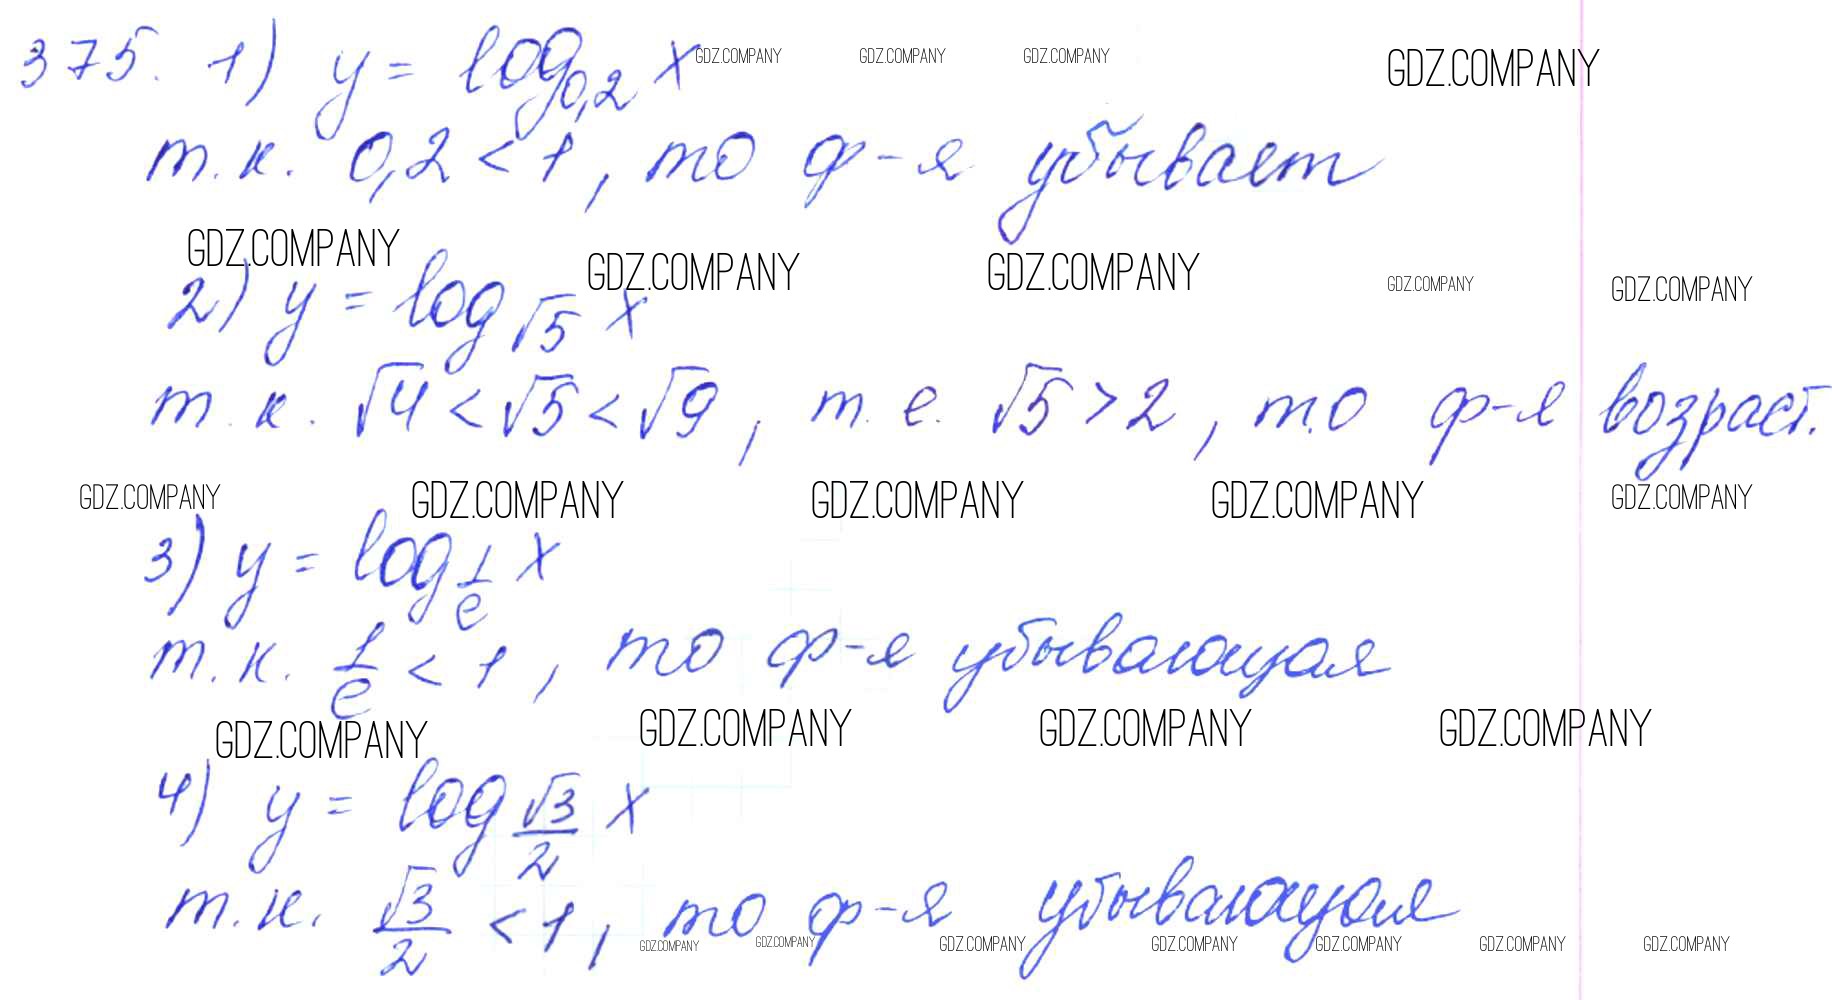 375. 1) y = log₀,₂ x GDZ.COMPANY GDZ.COMPANY GDZ.COMPANY GDZ.COMPANY
т.к. 0,2 < 1, то ф-я убывает
GDZ.COMPANY GDZ.COMPANY GDZ.COMPANY GDZ.COMPANY GDZ.COMPANY
2) y = log_√5 x
т.к. √4 < √5 < √9, т.е. √5 > 2, то ф-я возраст.
GDZ.COMPANY GDZ.COMPANY GDZ.COMPANY GDZ.COMPANY GDZ.COMPANY
3) y = log_1/e x
т.к. 1/e < 1, то ф-я убывающая
GDZ.COMPANY GDZ.COMPANY GDZ.COMPANY GDZ.COMPANY
4) y = log_√3/2 x
т.к. √3/2 < 1, то ф-я убывающая
GDZ.COMPANY GDZ.COMPANY GDZ.COMPANY GDZ.COMPANY GDZ.COMPANY GDZ.COMPANY GDZ.COMPANY